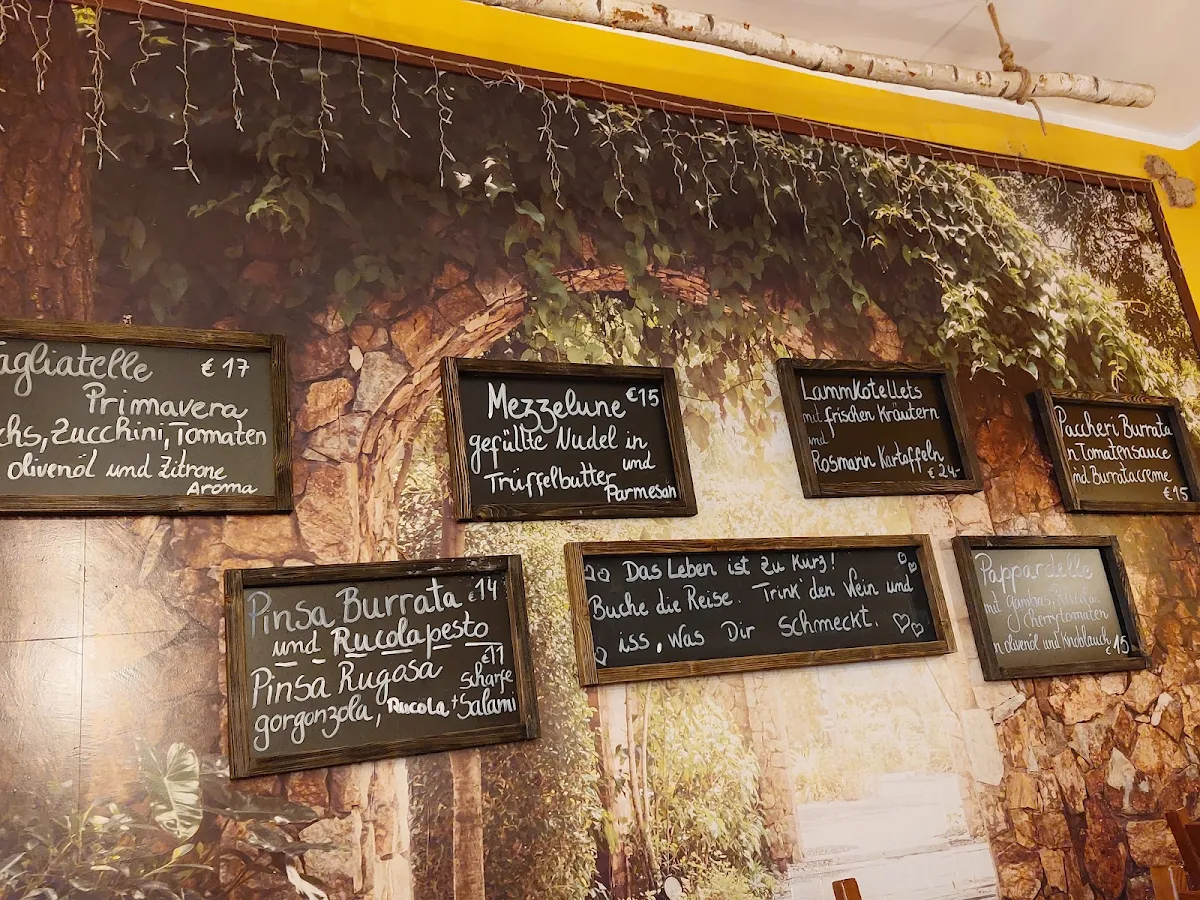 Tagliatelle €17
Primavera
Zucchini, Tomaten
olivenöl und Zitrone
Aroma
Mezzelune €15
gefüllte Nudel in
Trüffelbutter und
Parmesan
LammKotellets
mit frischen Kräutern
und
Rosmarin Kartoffeln
€24,-
Paccheri Burrata
in Tomatensauce
und Burratacreme
€15
Pinsa Burrata €14
und Rucolapesto
€11
Pinsa Rugosa scharfe
gorgonzola, Rucola + Salami
Das Leben ist zu Kurz!
Buche die Reise. Trink' den Wein und
iss, Was Dir schmeckt.
Pappardelle
mit gambas,
cherrytomaten
olivenöl und Knoblauch €15